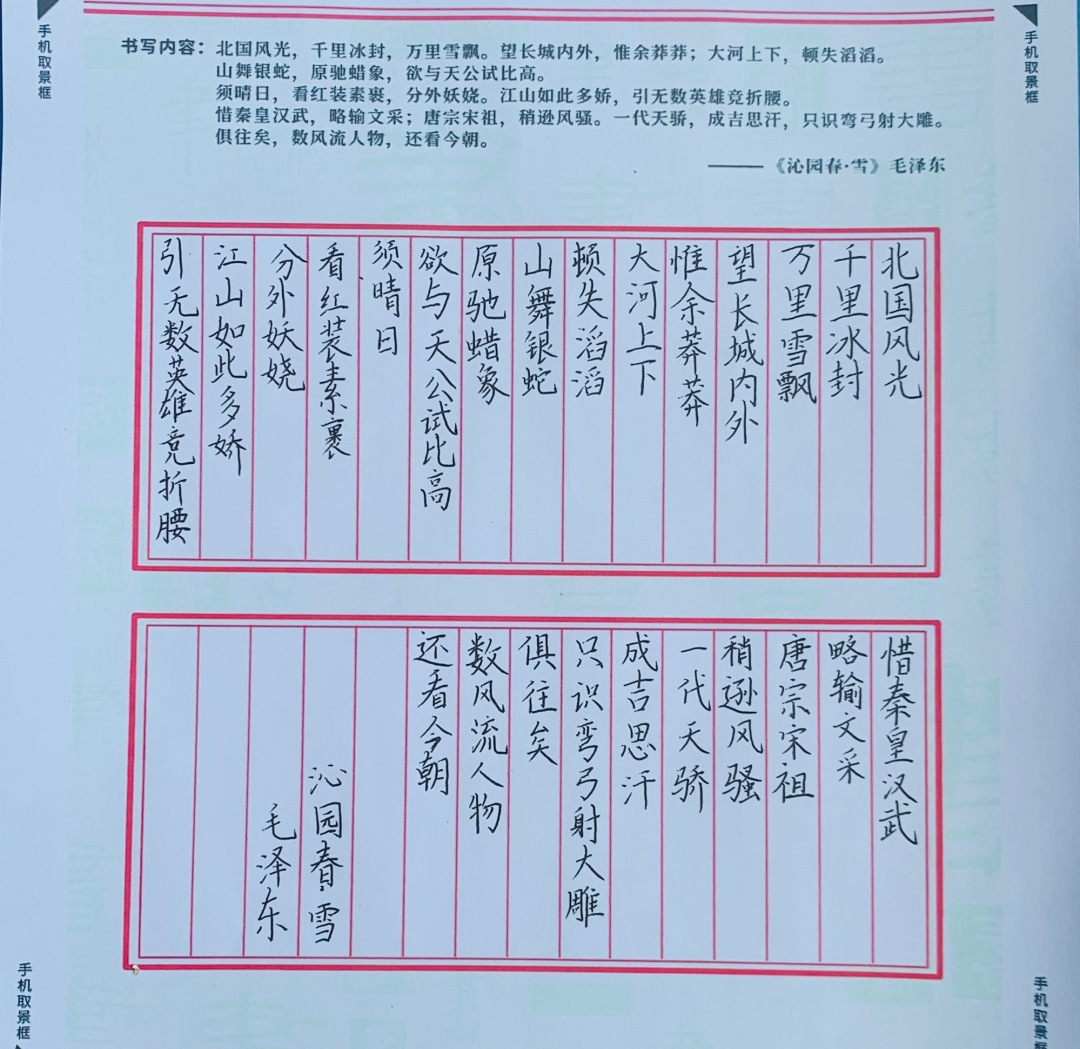 手机取景框
手机取景框
书写内容：北国风光，千里冰封，万里雪飘。望长城内外，惟余莽莽；大河上下，顿失滔滔。
山舞银蛇，原驰蜡象，欲与天公试比高。
须晴日，看红装素裹，分外妖娆。江山如此多娇，引无数英雄竞折腰。
惜秦皇汉武，略输文采；唐宗宋祖，稍逊风骚。一代天骄，成吉思汗，只识弯弓射大雕。
俱往矣，数风流人物，还看今朝。
——《沁园春·雪》毛泽东
北国风光
千里冰封
万里雪飘
望长城内外
惟余莽莽
大河上下
顿失滔滔
山舞银蛇
原驰蜡象
欲与天公试比高
须晴日
看红装素裹
分外妖娆
江山如此多娇
引无数英雄竞折腰
惜秦皇汉武
略输文采
唐宗宋祖
稍逊风骚
一代天骄
成吉思汗
只识弯弓射大雕
俱往矣
数风流人物
还看今朝
沁园春·雪
毛泽东
手机取景框
手机取景框